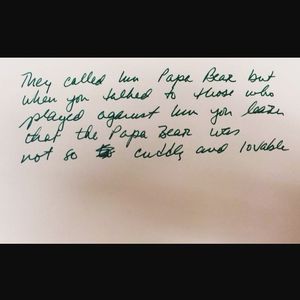 They called him Papa Bear but
when you talked to those who
played against him you learn
that the Papa Bear was
not so cuddly and lovable